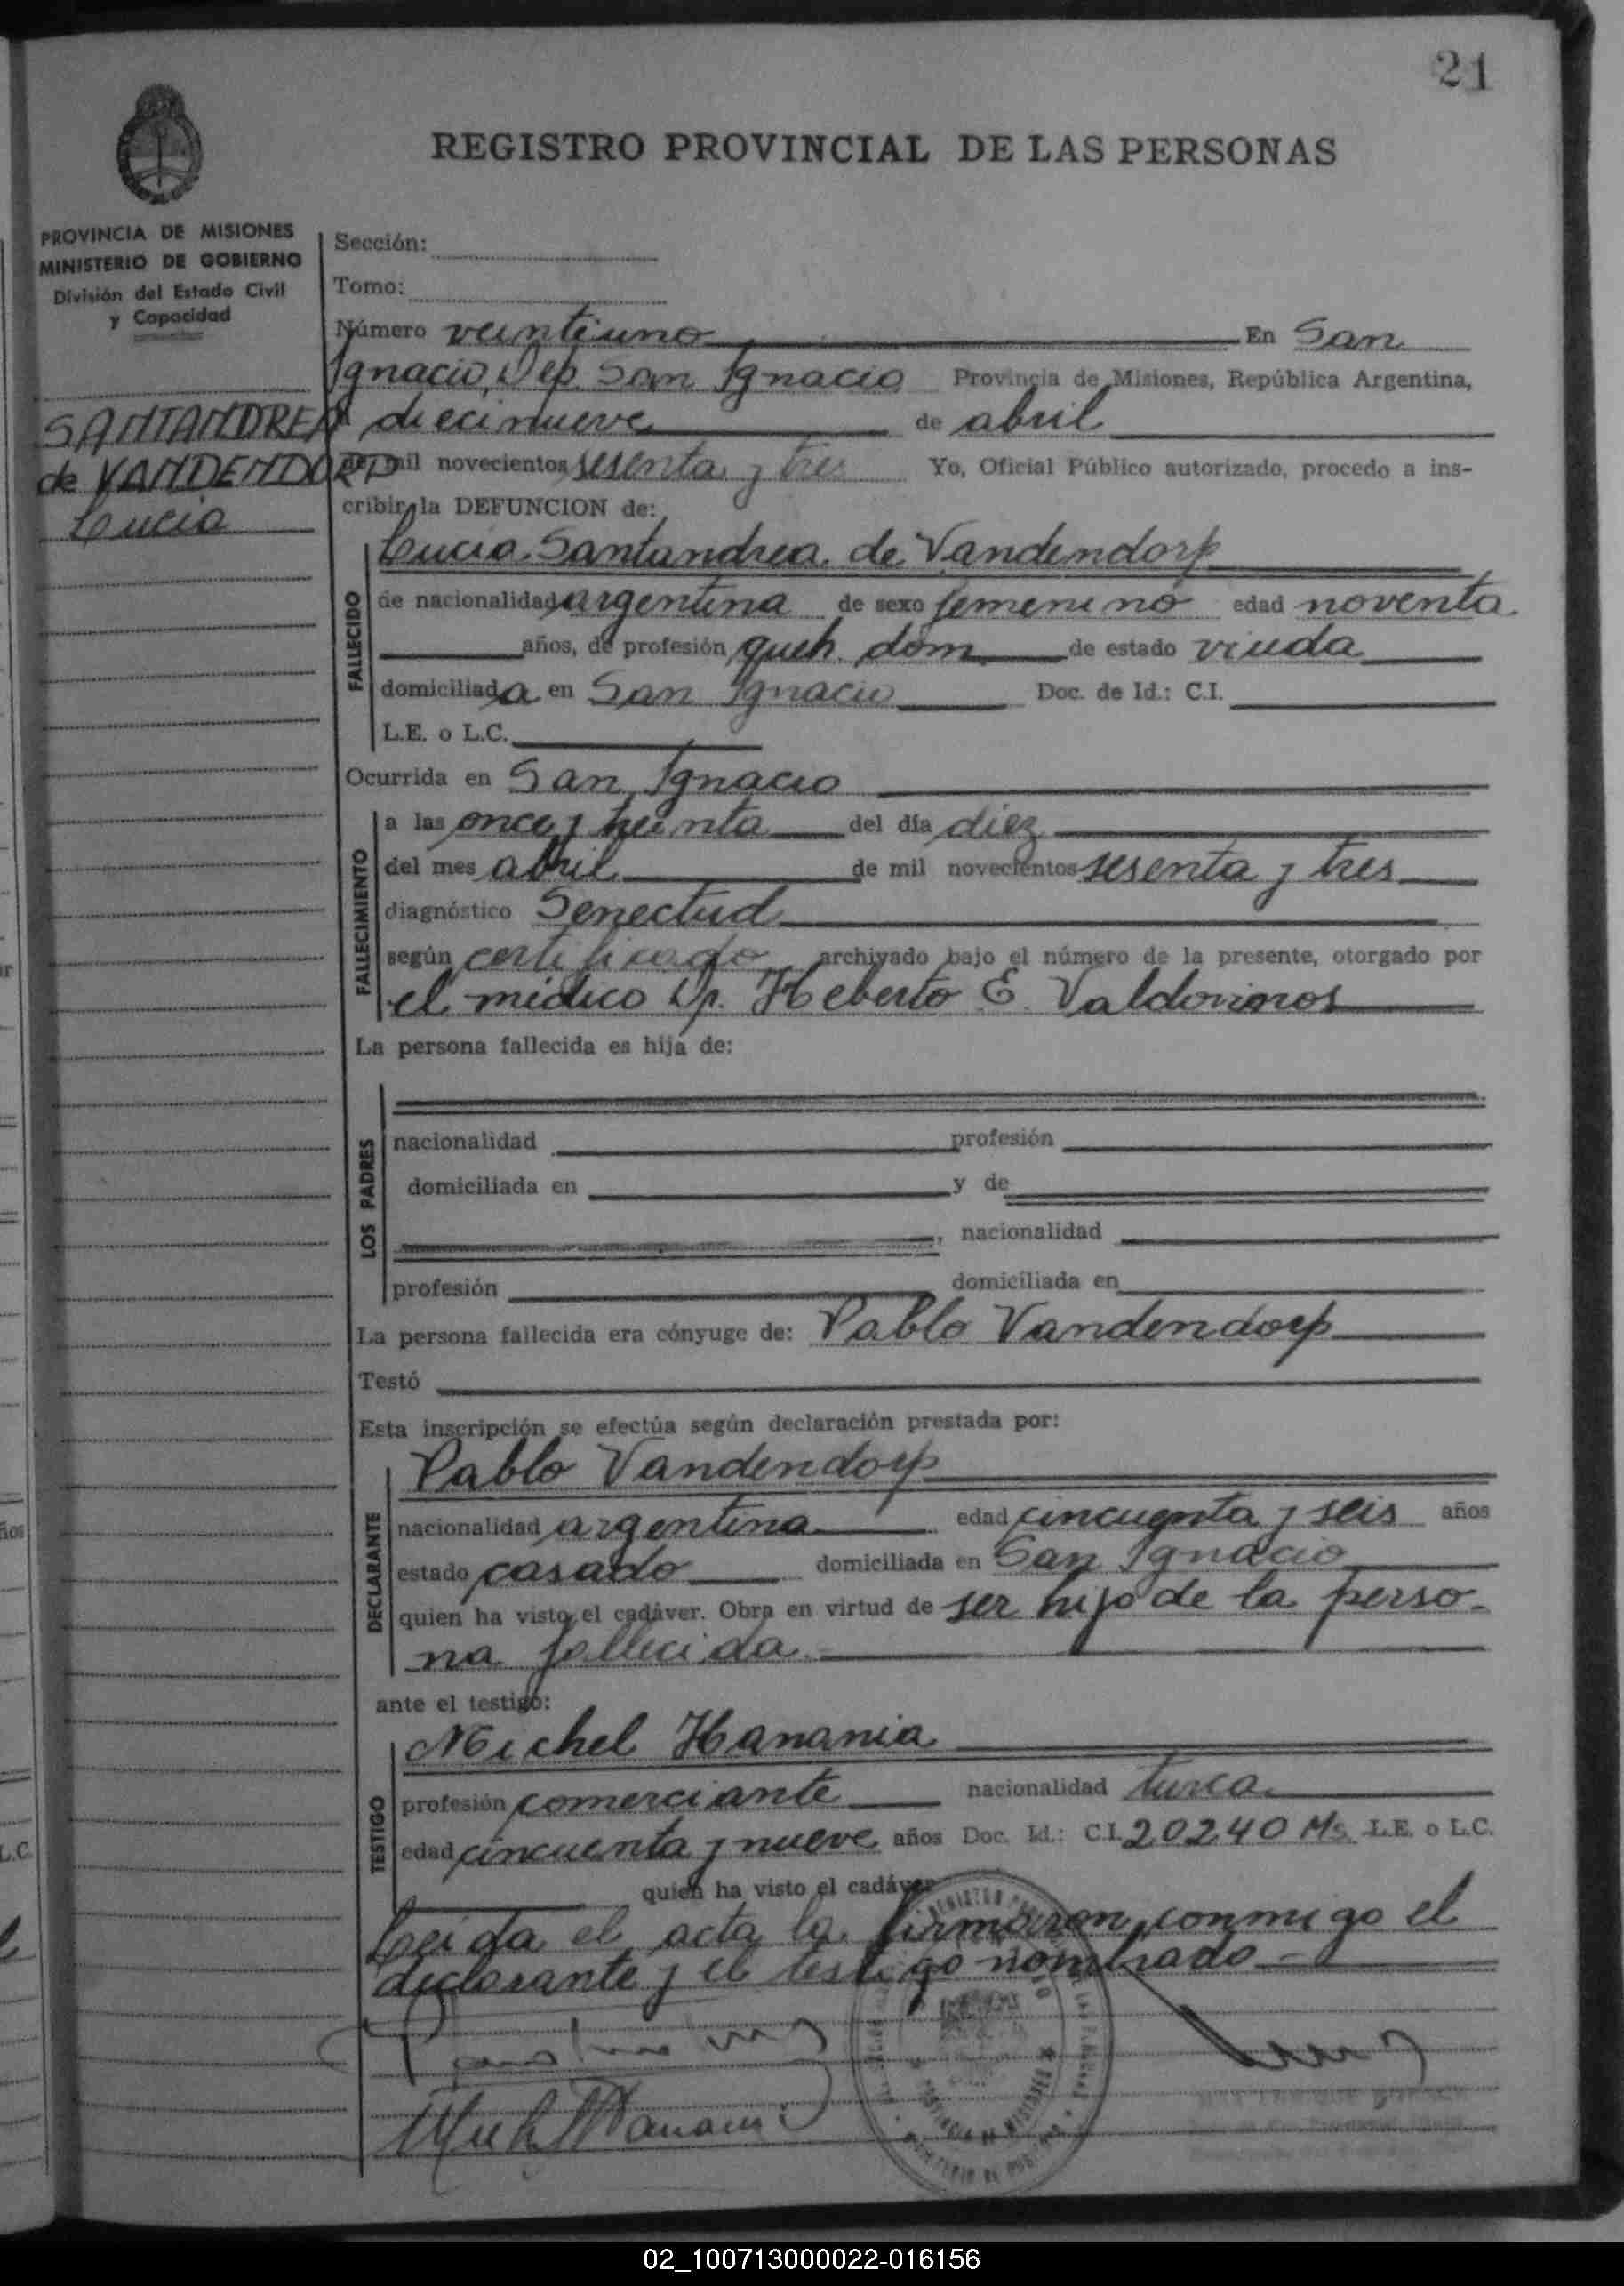 21
REGISTRO PROVINCIAL DE LAS PERSONAS
PROVINCIA DE MISIONES
MINISTERIO DE GOBIERNO
División del Estado Civil
y Capacidad
SANTANDREA
de VANDENDORP
Lucia
Sección:
Tomo:
Número veintiuno En San
Ignacio, Dep. San Ignacio Provincia de Misiones, República Argentina,
a diecinueve de abril
de mil novecientos sesenta y tres Yo, Oficial Público autorizado, procedo a ins-
cribir la DEFUNCION de:
FALLECIDO
Lucia Santandrea de Vandendorp
de nacionalidad argentina de sexo femenino edad noventa
años, de profesión queh. dom. de estado viuda
domiciliada en San Ignacio Doc. de Id.: C.I.
L.E. o L.C.
Ocurrida en San Ignacio
FALLECIMIENTO
a las once y treinta del día diez
del mes abril de mil novecientos sesenta y tres
diagnóstico Senectud
según certificado archivado bajo el número de la presente, otorgado por
el médico Dr. Heberto E. Valdovinos
La persona fallecida es hija de:
LOS PADRES
nacionalidad profesión
domiciliada en y de
, nacionalidad
profesión domiciliada en
La persona fallecida era cónyuge de: Pablo Vandendorp
Testó
Esta inscripción se efectúa según declaración prestada por:
DECLARANTE
Pablo Vandendorp
nacionalidad argentina edad cincuenta y seis años
estado casado domiciliada en San Ignacio
quien ha visto el cadáver. Obra en virtud de ser hijo de la perso-
na fallecida.
ante el testigo:
TESTIGO
Michel Hanania
profesión comerciante nacionalidad turca
edad cincuenta y nueve años Doc. Id.: C.I. 20240 Ms. L.E. o L.C.
quien ha visto el cadáver
Leida el acta la firmaron conmigo el
declarante y el testigo nombrado
02_100713000022-016156